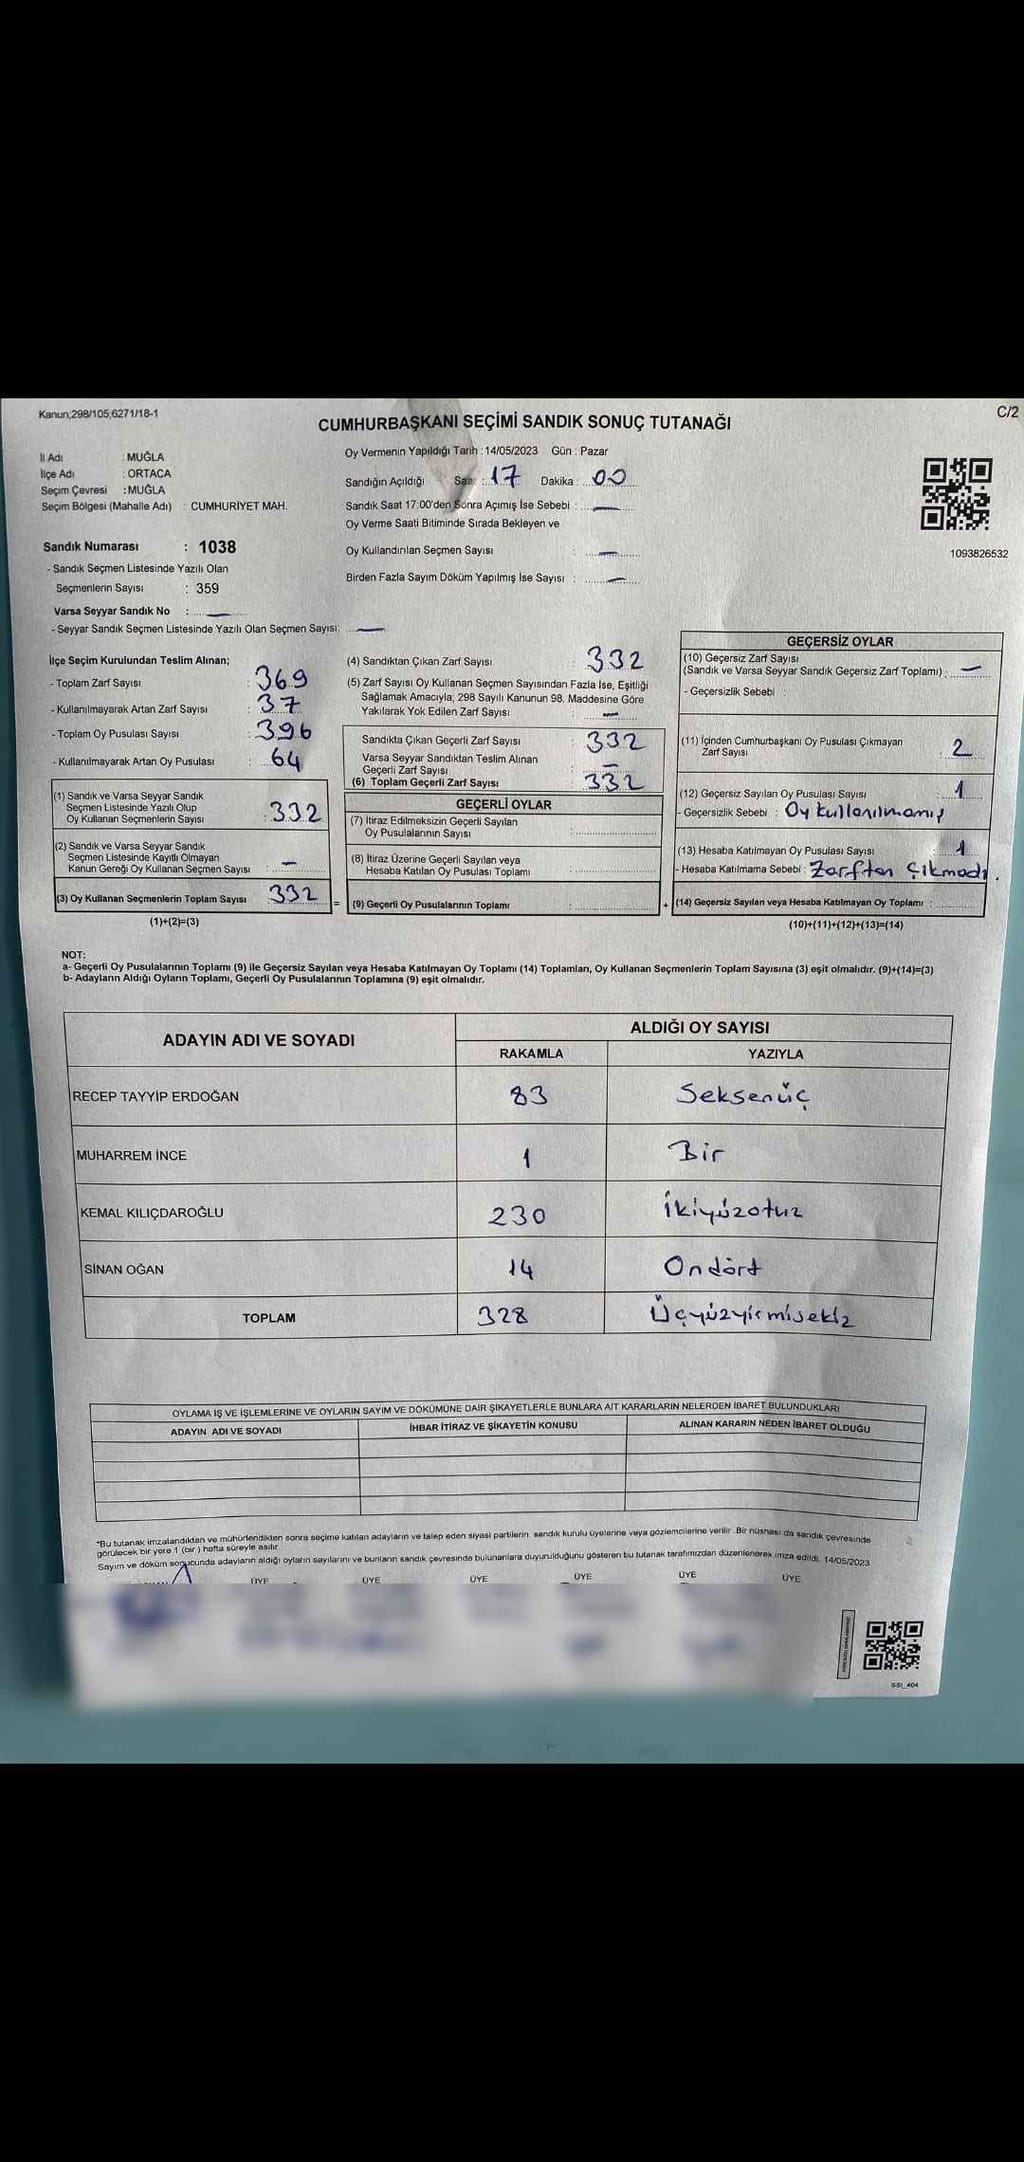 Kanun;298/105,6271/18-1
C/2
CUMHURBAŞKANI SEÇİMİ SANDIK SONUÇ TUTANAĞI
İl Adı : MUĞLA
İlçe Adı : ORTACA
Seçim Çevresi : MUĞLA
Seçim Bölgesi (Mahalle Adı) : CUMHURİYET MAH.
Sandık Numarası : 1038
- Sandık Seçmen Listesinde Yazılı Olan
Seçmenlerin Sayısı : 359
Varsa Seyyar Sandık No : —
- Seyyar Sandık Seçmen Listesinde Yazılı Olan Seçmen Sayısı: —
Oy Vermenin Yapıldığı Tarih : 14/05/2023 Gün : Pazar
Sandığın Açıldığı Saat : 17 Dakika : 00
Sandık Saat 17:00'den Sonra Açımış İse Sebebi : —
Oy Verme Saati Bitiminde Sırada Bekleyen ve
Oy Kullandırılan Seçmen Sayısı : —
Birden Fazla Sayım Döküm Yapılmış İse Sayısı : —
1093826532
İlçe Seçim Kurulundan Teslim Alınan;
- Toplam Zarf Sayısı : 369
- Kullanılmayarak Artan Zarf Sayısı : 37
- Toplam Oy Pusulası Sayısı : 396
- Kullanılmayarak Artan Oy Pusulası : 64
(1) Sandık ve Varsa Seyyar Sandık
Seçmen Listesinde Yazılı Olup
Oy Kullanan Seçmenlerin Sayısı : 332
(2) Sandık ve Varsa Seyyar Sandık
Seçmen Listesinde Kayıtlı Olmayan
Kanun Gereği Oy Kullanan Seçmen Sayısı : —
(3) Oy Kullanan Seçmenlerin Toplam Sayısı 332 =
(1)+(2)=(3)
(4) Sandıktan Çıkan Zarf Sayısı : 332
(5) Zarf Sayısı Oy Kullanan Seçmen Sayısından Fazla İse, Eşitliği
Sağlamak Amacıyla, 298 Sayılı Kanunun 98. Maddesine Göre
Yakılarak Yok Edilen Zarf Sayısı : —
Sandıkta Çıkan Geçerli Zarf Sayısı : 332
Varsa Seyyar Sandıktan Teslim Alınan
Geçerli Zarf Sayısı : —
(6) Toplam Geçerli Zarf Sayısı : 332
GEÇERLİ OYLAR
(7) İtiraz Edilmeksizin Geçerli Sayılan
Oy Pusulalarının Sayısı :
(8) İtiraz Üzerine Geçerli Sayılan veya
Hesaba Katılan Oy Pusulası Toplamı :
(9) Geçerli Oy Pusulalarının Toplamı : +
GEÇERSİZ OYLAR
(10) Geçersiz Zarf Sayısı
(Sandık ve Varsa Seyyar Sandık Geçersiz Zarf Toplamı) : —
- Geçersizlik Sebebi :
(11) İçinden Cumhurbaşkanı Oy Pusulası Çıkmayan
Zarf Sayısı : 2
(12) Geçersiz Sayılan Oy Pusulası Sayısı : 1
- Geçersizlik Sebebi : Oy kullanılmamış
(13) Hesaba Katılmayan Oy Pusulası Sayısı : 1
- Hesaba Katılmama Sebebi : Zarftan Çıkmadı.
(14) Geçersiz Sayılan veya Hesaba Katılmayan Oy Toplamı :
(10)+(11)+(12)+(13)=(14)
NOT:
a- Geçerli Oy Pusulalarının Toplamı (9) ile Geçersiz Sayılan veya Hesaba Katılmayan Oy Toplamı (14) Toplamları, Oy Kullanan Seçmenlerin Toplam Sayısına (3) eşit olmalıdır. (9)+(14)=(3)
b- Adayların Aldığı Oyların Toplamı, Geçerli Oy Pusulalarının Toplamına (9) eşit olmalıdır.
ADAYIN ADI VE SOYADI ALDIĞI OY SAYISI
RAKAMLA YAZIYLA
RECEP TAYYİP ERDOĞAN 83 Seksenüç
MUHARREM İNCE 1 Bir
KEMAL KILIÇDAROĞLU 230 İkiyüzotuz
SİNAN OĞAN 14 Ondört
TOPLAM 328 Üçyüzyirmisekiz
OYLAMA İŞ VE İŞLEMLERİNE VE OYLARIN SAYIM VE DÖKÜMÜNE DAİR ŞİKAYETLERLE BUNLARA AİT KARARLARIN NELERDEN İBARET BULUNDUKLARI
ADAYIN ADI VE SOYADI İHBAR İTİRAZ VE ŞİKAYETİN KONUSU ALINAN KARARIN NEDEN İBARET OLDUĞU
*Bu tutanak imzalandıktan ve mühürlendikten sonra seçime katılan adayların ve talep eden siyasi partilerin sandık kurulu üyelerine veya gözlemcilerine verilir. Bir nüshası da sandık çevresinde
görülecek bir yere 1 (bir) hafta süreyle asılır.
Sayım ve döküm sonucunda adayların aldığı oyların sayılarını ve bunların sandık çevresinde bulunanlara duyurulduğunu gösteren bu tutanak tarafımızdan düzenlenerek imza edildi. 14/05/2023
ÜYE ÜYE ÜYE ÜYE ÜYE ÜYE
SSI_404